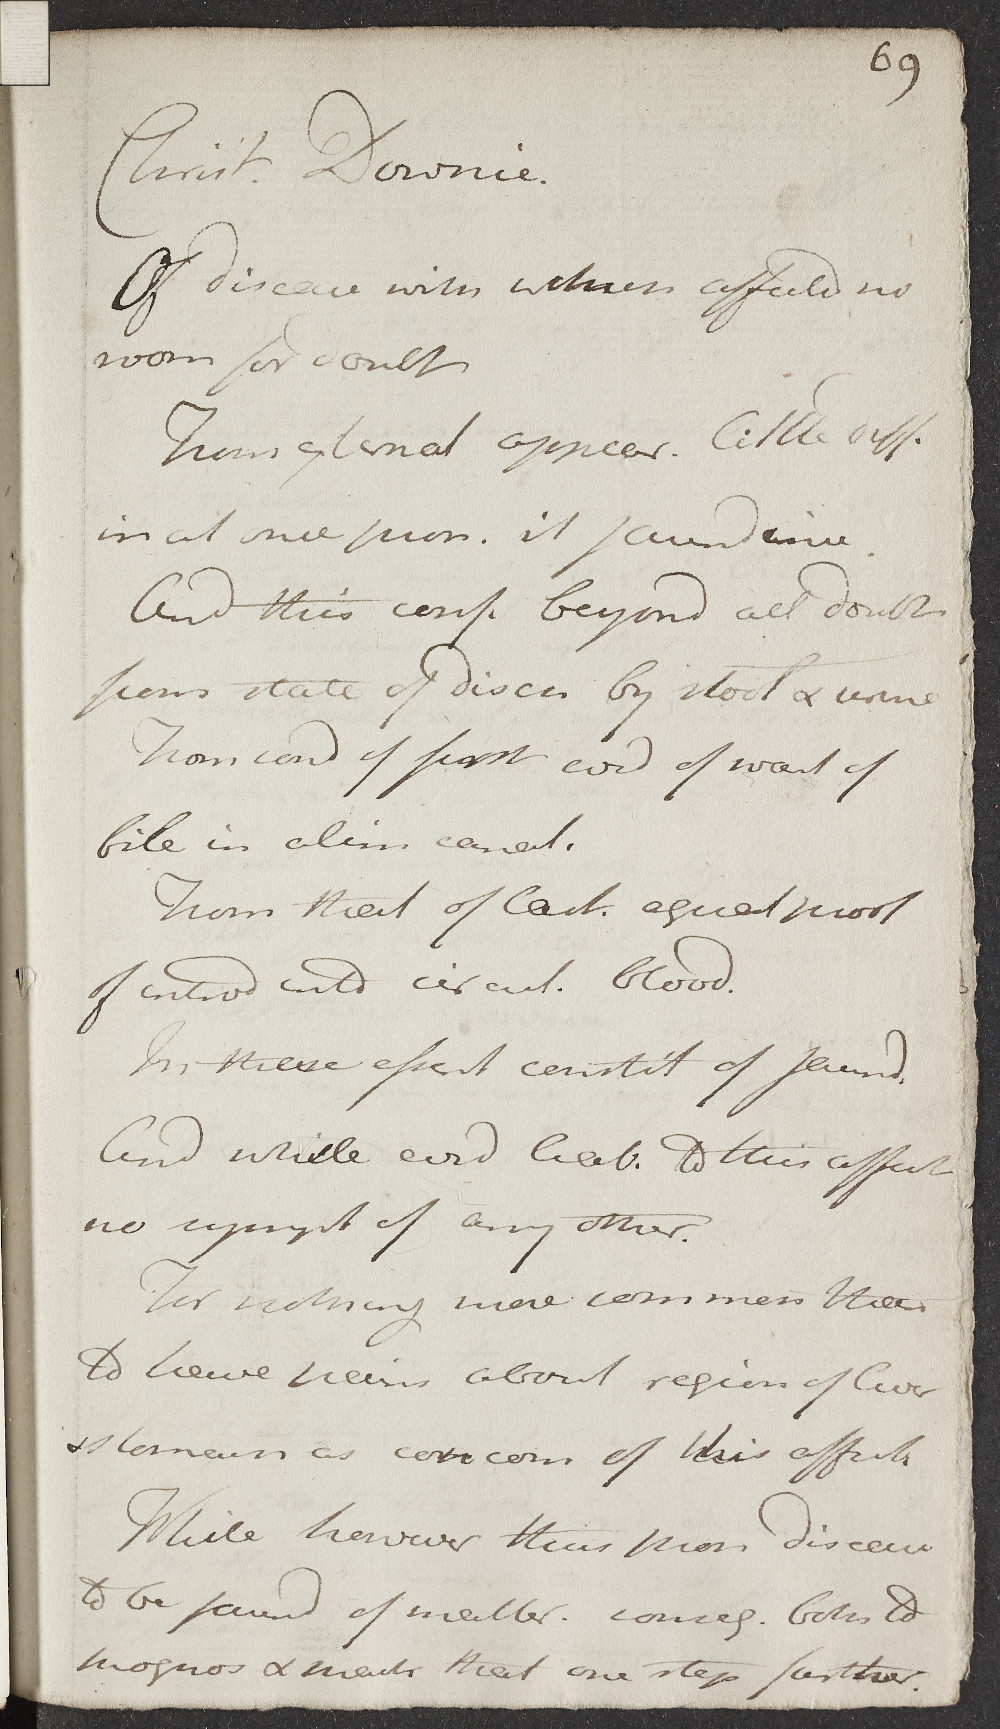 69
Christ. Downie.
Of disease with which affected no
room for doubt
From external appear. little diff.
in at once pron. it jaundice.
And this conf. beyond all doubt
from state of disch by stool & urine
From cond of first evid of want of
bile in alim canal.
From that of last. equal proof
of introd into circul. blood.
In these essent constit of jaund.
And while evid liab. to this affect
no sympt of any other.
For nothing more common than
to have pains about region of liver
& stomach as concom of this affect.
While however thus pron disease
to be jaund of matter. conseq. both to
prognos & meth that one step further.